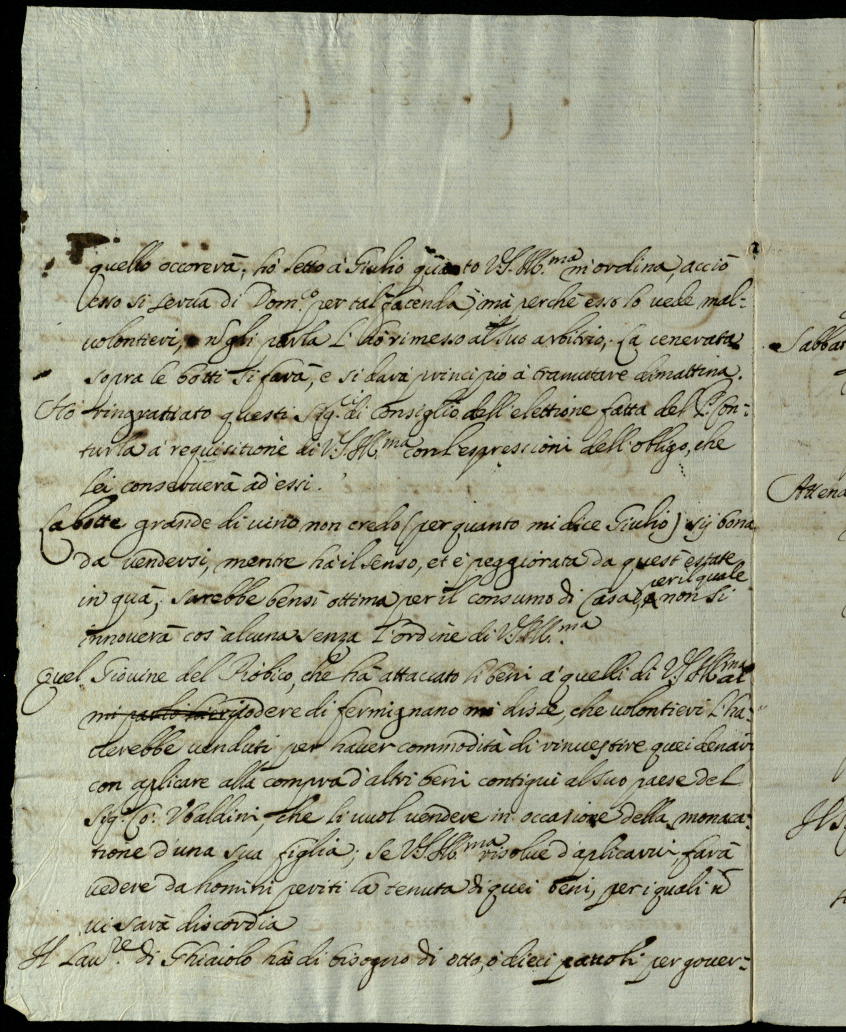 quello occorerà; hò detto à Giulio quanto V.S. Ill.ma m'ordina, acciò
esso si serva di Dom.o per tal facenda, mà perche esso lo vede mal=
volontieri, nõ gli parla l'hò rimesso al suo arbitrio. La cenerata
sopra le botti si farà, e si darà principio à tramutare dimattina.
Hò ringratiato questi Sig.ri di Consiglio dell'elettione fatta del P. Con=
turla à requisitione di V.S. Ill.ma con l'espressioni dell'obligo, che
lei conserverà ad essi.
La botte grande di vino non credo (per quanto mi dice Giulio) sij bona
da vendersi, mentre hà il senso, et è peggiorata da quest'estate
in quà; sarebbe bensì ottima per il consumo di Casa, per il quale non si
innoverà cos'alcuna senza l'ordine di V.S. Ill.ma
Quel Giovine del Piobico, che hà attaccato li beni à quelli di V.S. Ill.ma al
podere di fermignano mi disse, che volontieri l'ha=
verebbe venduti per haver commodità di rinvestire quei denari
con aplicare alla compra d'altri beni contigui al suo paese del
Sig.r Co: Ubaldini, che li vuol vendere in occasione della monaca=
tione d'una sua figlia; se V.S. Ill.ma risolve d'aplicarvi, farà
vedere da homini periti la tenuta di quei beni, per i quali nõ
vi sarà discordia
Il Lau.re di Ghiaiolo hà di bisogno di otto, ò dieci pauoli per gover=
Sabba
Attena
Il S